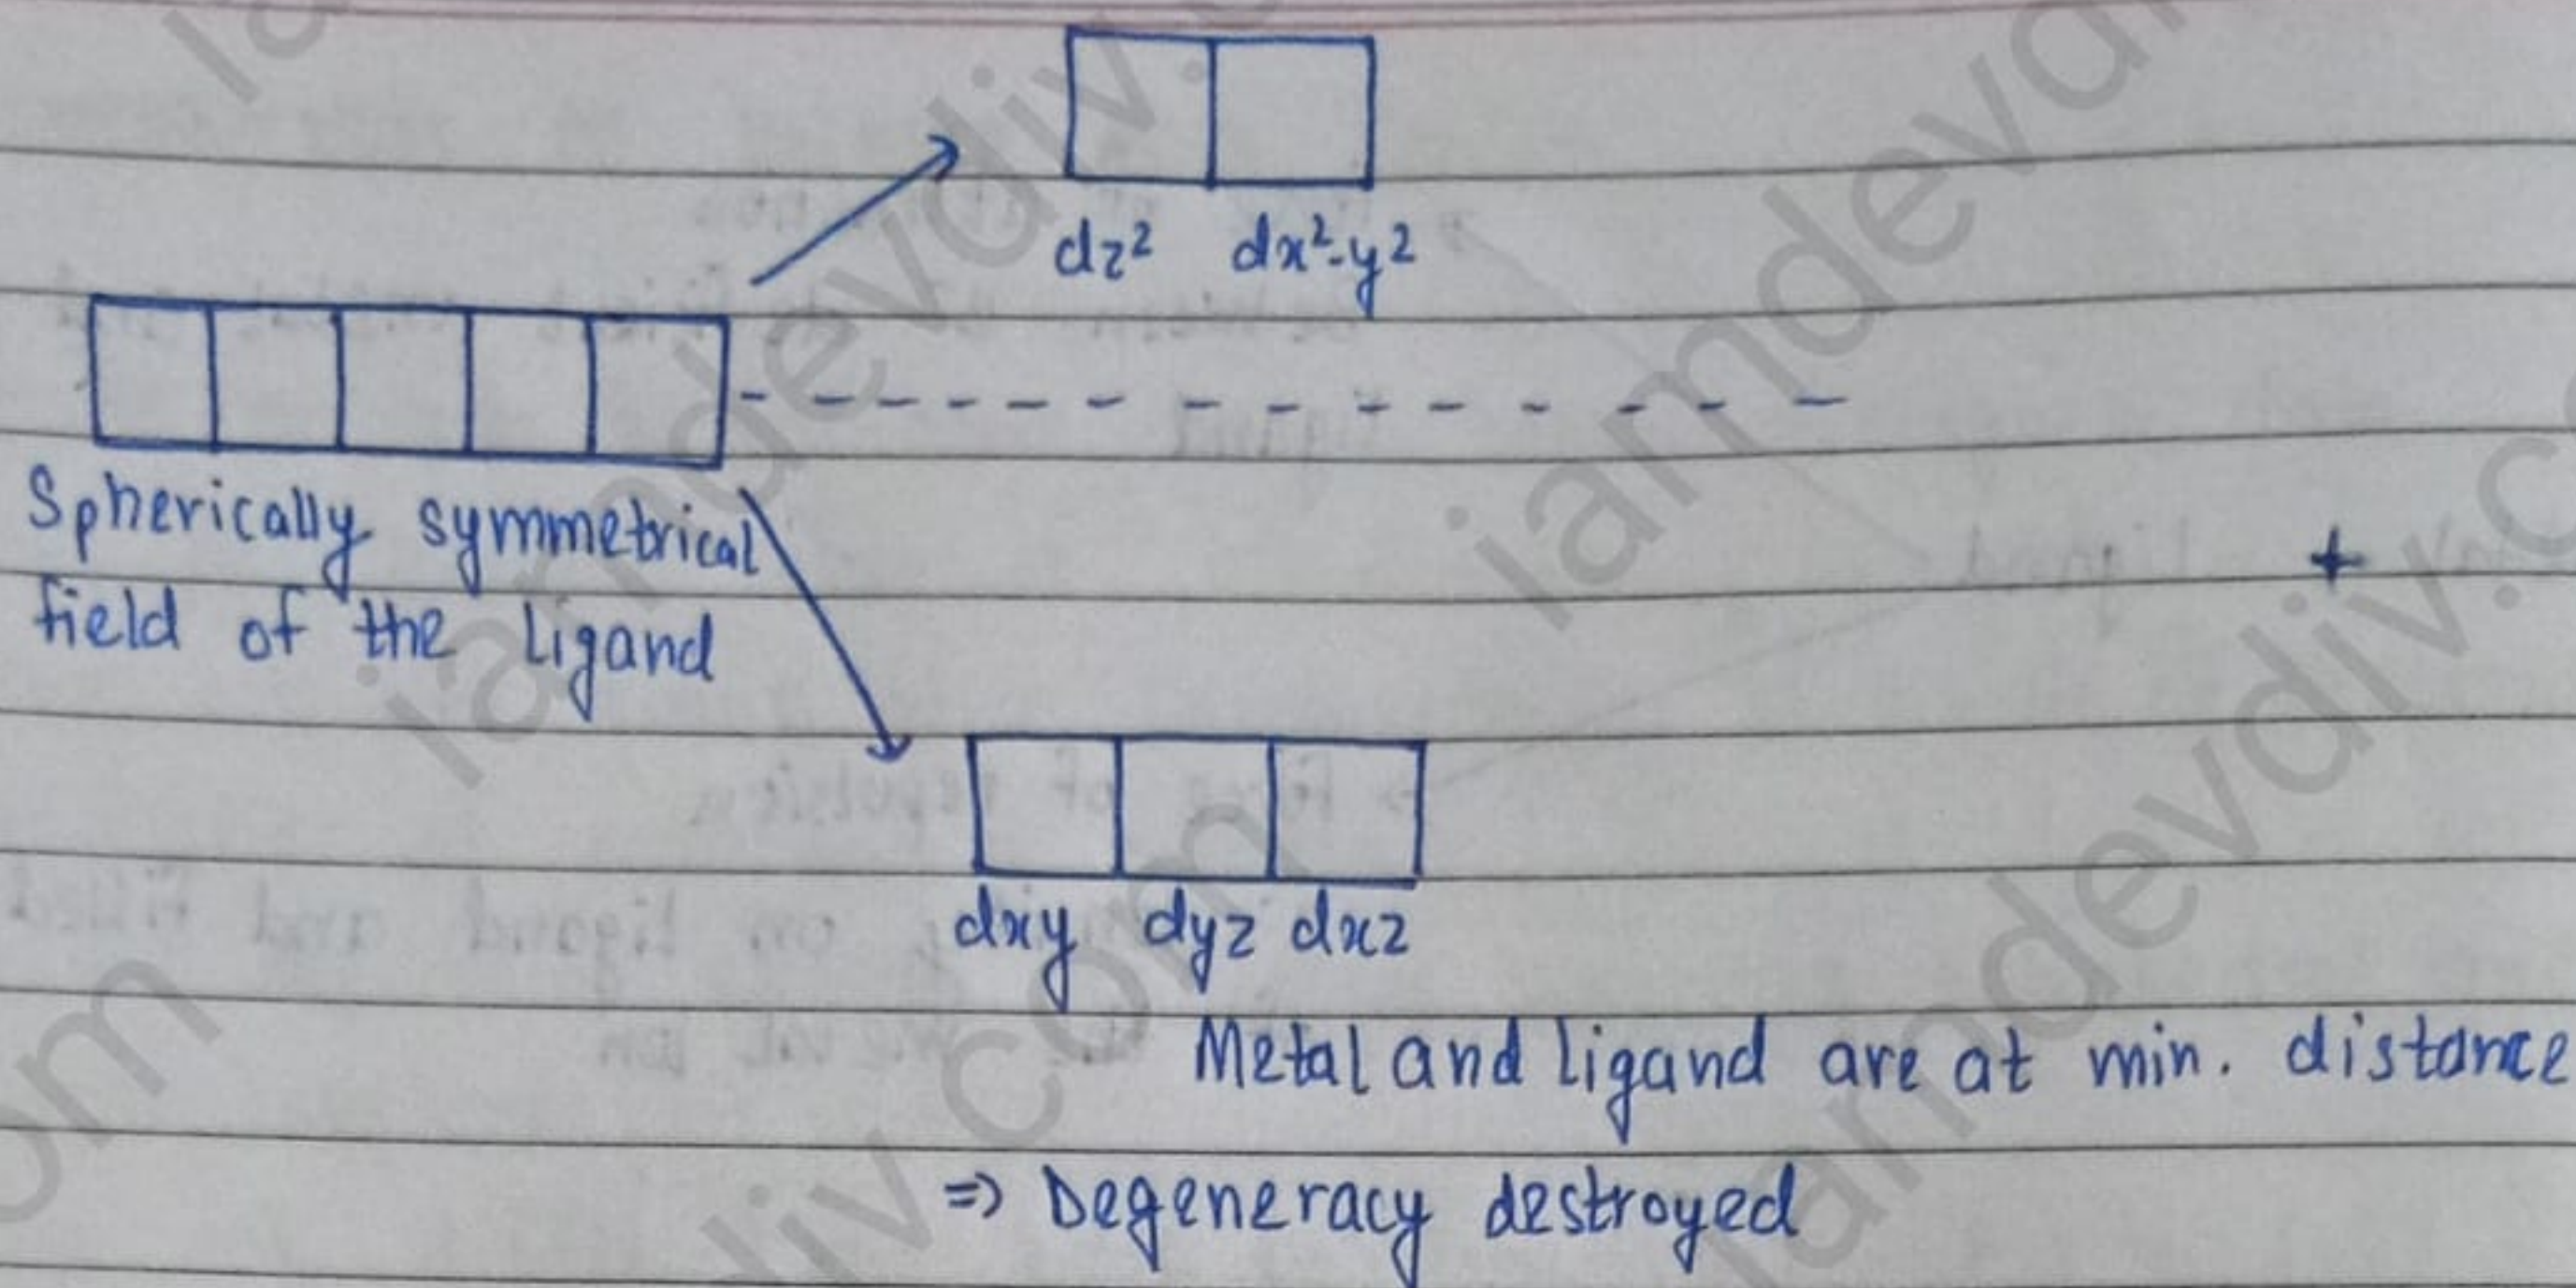 dz² dx²-y²
Spherically symmetrical
field of the ligand
dxy dyz dxz
Metal and ligand are at min. distance
=> Degeneracy destroyed
+
iamdevdiv.com